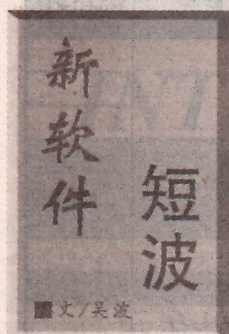 新软件
短波
文/吴波